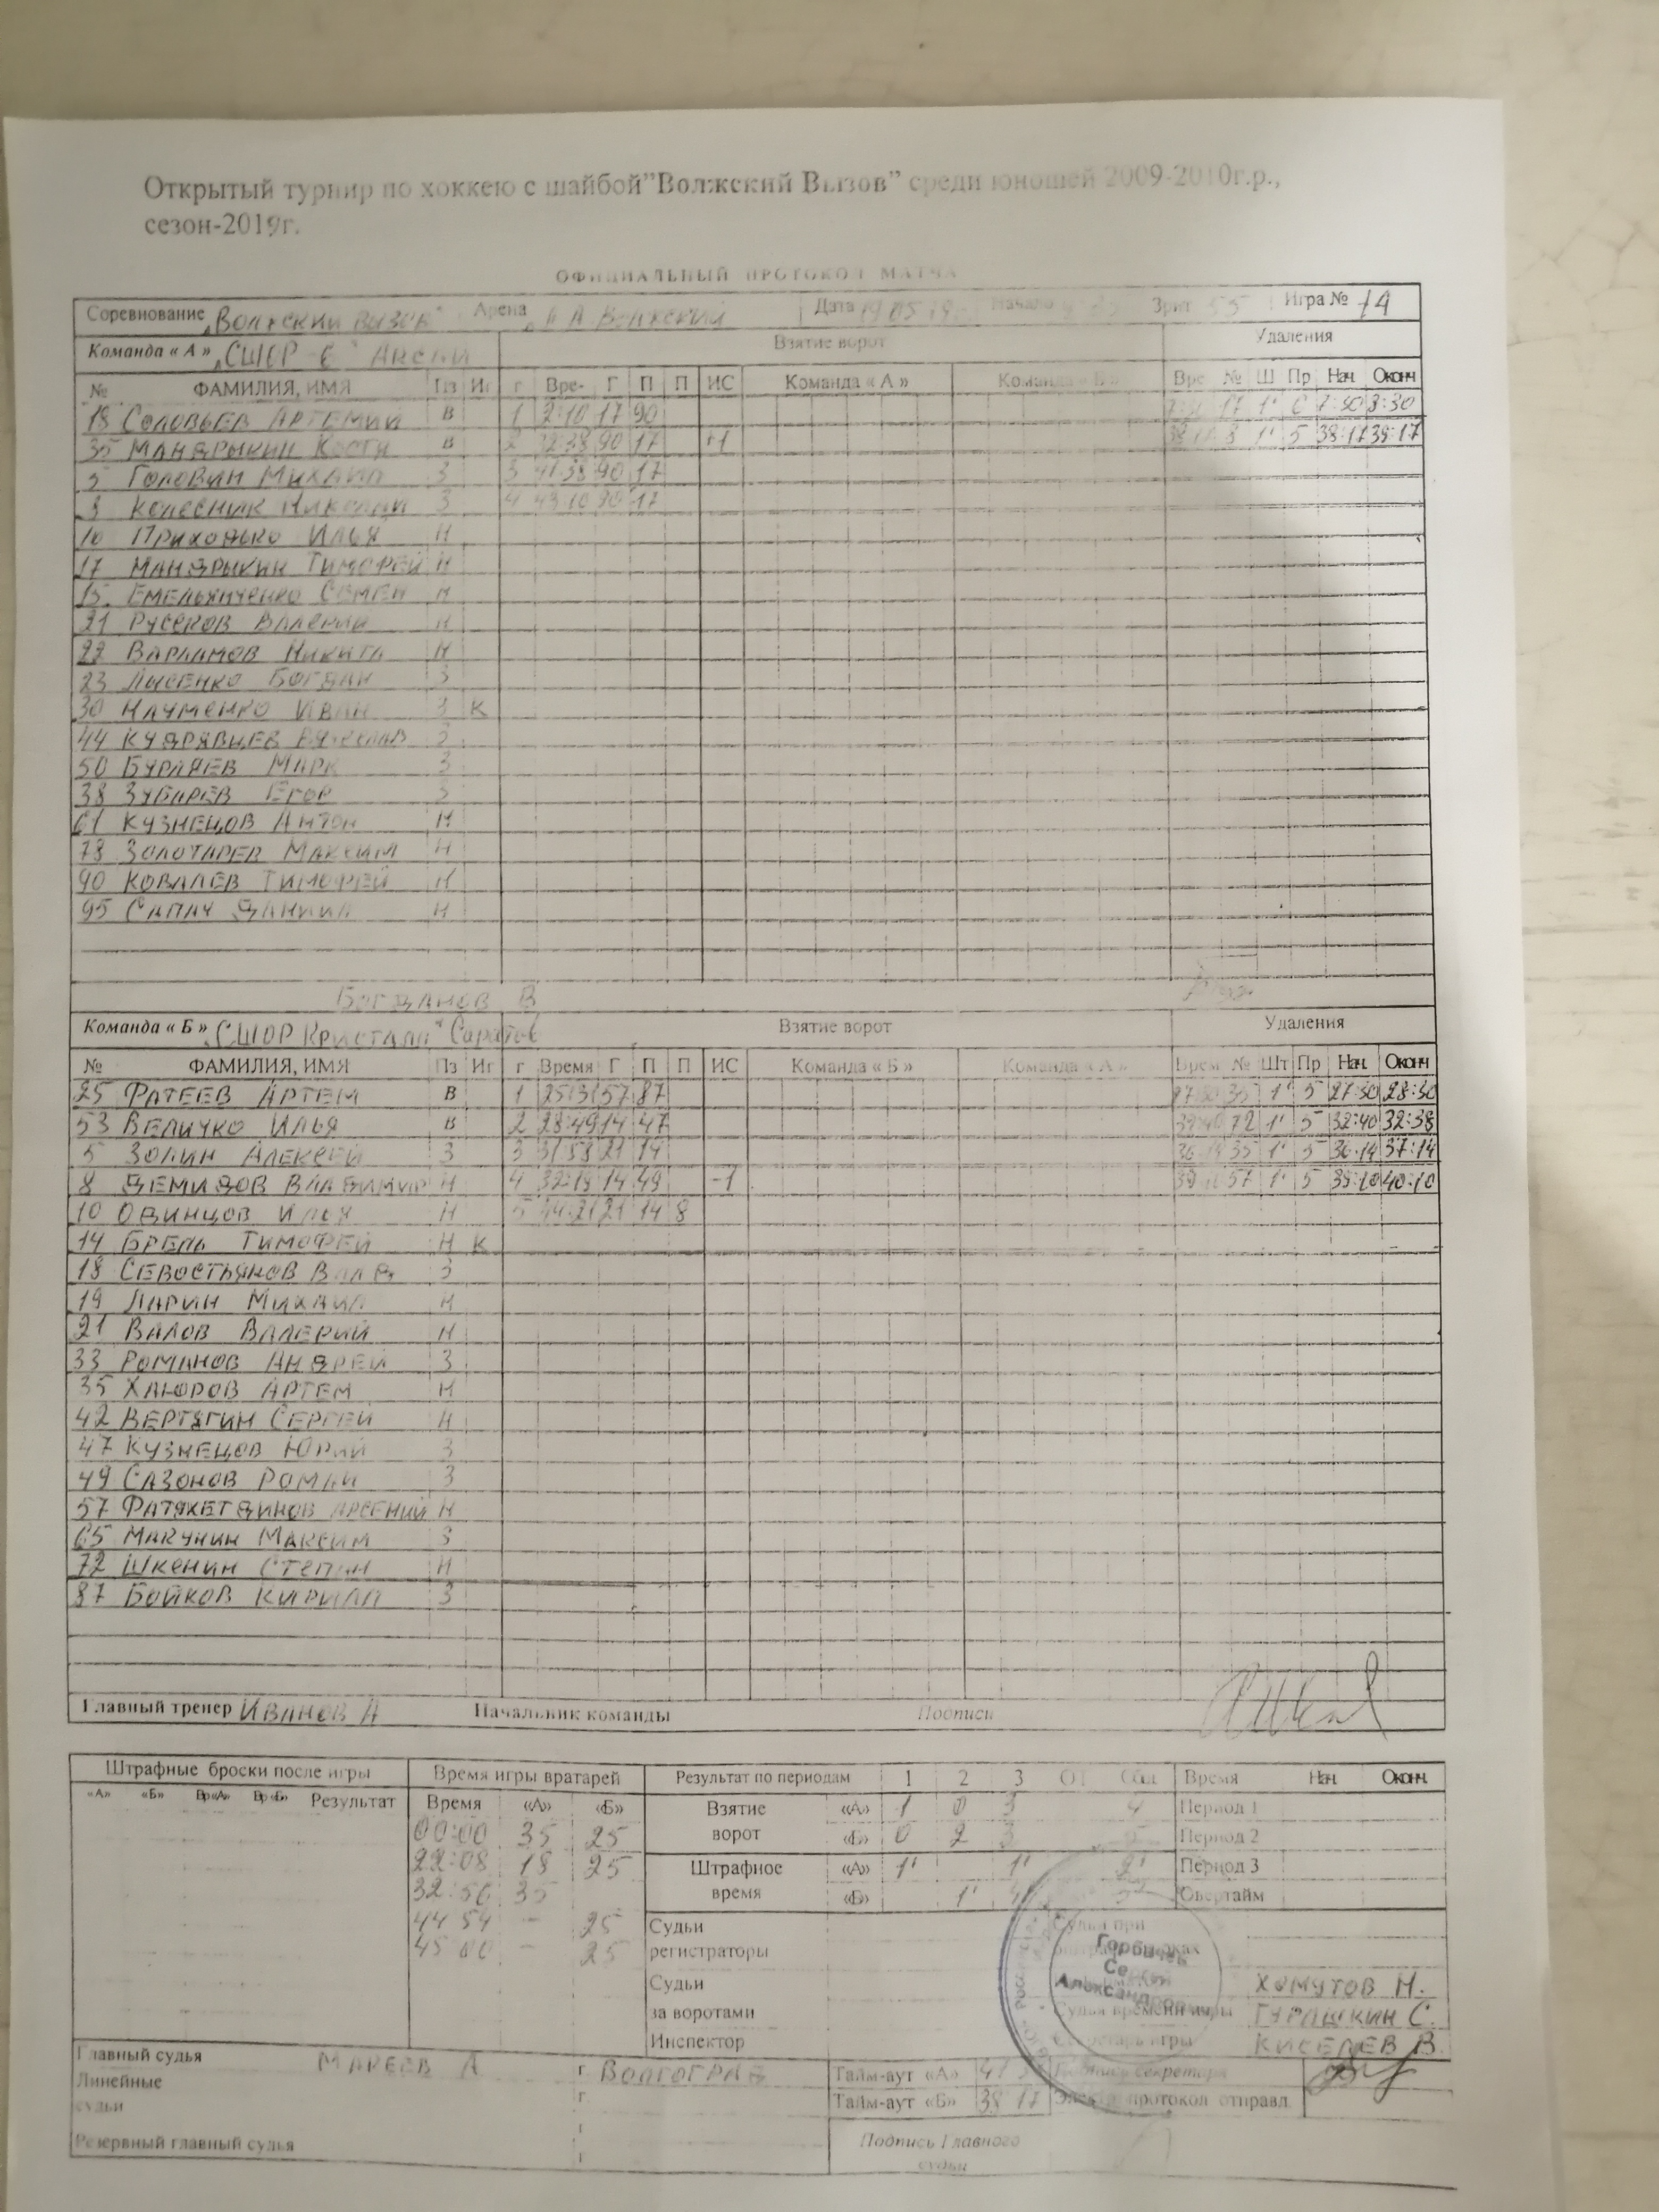 Открытый турнир по хоккею с шайбой"Волжский Вызов" среди юношей 2009-2010г.р.,
сезон-2019г.
ОФИЦИАЛЬНЫЙ ПРОТОКОЛ МАТЧА
Соревнование „Волжский Вызов" Арена Волжский Дата 19 05 19 Начало Зрит 55 Игра № 14
Команда « А » „СШОР Взятие ворот Удаления
№ ФАМИЛИЯ, ИМЯ Пз Иг г Вре- Г П П ИС Команда « А » Команда « Б » Врс № Ш Пр Нач. Оконч
18 Соловьев Артемий В 1 2:10 17 90 17 1' 7:30 8:30
35 Мандрыкин Костя В 2 32:38 90 17 +1 1' 5 38:17 39:17
Головин Михаил З 3 41:38 90 17
Колесник Николай З 4 43:10 90 17
10 Приходько Илья Н
17 Мандрыкин Тимофей Н
15 Емельянченко Семен Н
21 Русеков Валерий Н
22 Варламов Никита Н
23 Лысенко Богдан З
30 Науменко Иван З К
44 Кудрявцев З
50 Бурляев Марк З
38 Зубарев Егор З
61 Кузнецов Антон Н
78 Золотарев Максим Н
90 Ковалев Тимофей Н
95 Сапач Даниил Н
Богданов В
Команда « Б » „СШОР Кристалл" Саратов Взятие ворот Удаления
№ ФАМИЛИЯ, ИМЯ Пз Иг г Время Г П П ИС Команда « Б » Команда « А » Врем № Шт Пр Нач. Оконч
25 Фатеев Артем В 1 25:31 57 87 27:30 35 1' 5 27:30 28:30
53 Величко Илья В 2 28:49 14 47 32:40 72 1' 5 32:40 32:38
5 Золин Алексей З 3 31:58 21 14 36:14 35 1' 5 36:14 37:14
8 Демидов Владимир Н 4 32:19 14 49 -1 39:10 57 1' 5 39:10 40:10
10 Одинцов Илья Н 5 44:21 21 14 8
14 Брель Тимофей Н К
18 Севостьянов Влад З
19 Ларин Михаил Н
21 Валов Валерий Н
33 Романов Андрей З
35 Хаюров Артем Н
42 Вертягин Сергей Н
47 Кузнецов Юрий З
49 Сазонов Роман З
57 Фатяхетдинов Арсений Н
65 Макунин Максим З
72 Шкенин Степан Н
87 Бойков Кирилл З
Главный тренер Иванов А Начальник команды Подписи
Штрафные броски после игры Время игры вратарей Результат по периодам 1 2 3 ОТ Общ Время Нач. Оконч.
«А» «Б» Вр«А» Вр«Б» Результат Время «А» «Б» Взятие ворот «А» 1 0 3 4 Период 1
00:00 35 25 «Б» 0 2 3 5 Период 2
22:08 18 25 Штрафное время «А» 1' 1' 2' Период 3
32:50 35 «Б» 1' Овертайм
44 54 - 25 Судьи
45 00 - 25 регистраторы
Судья при
Горбачев
Се
Александрович
Судьи Хомутов Н.
за воротами Судья времени игры Гурашкин С.
Инспектор Секретарь игры Киселев В.
Главный судья Макеев А г. Волгоград Тайм-аут «А» 41 Подпись секретаря
Линейные г. Тайм-аут «Б» 38 17 Электр. протокол отправл.
судьи
Резервный главный судья г. Подпись Главного
судьи